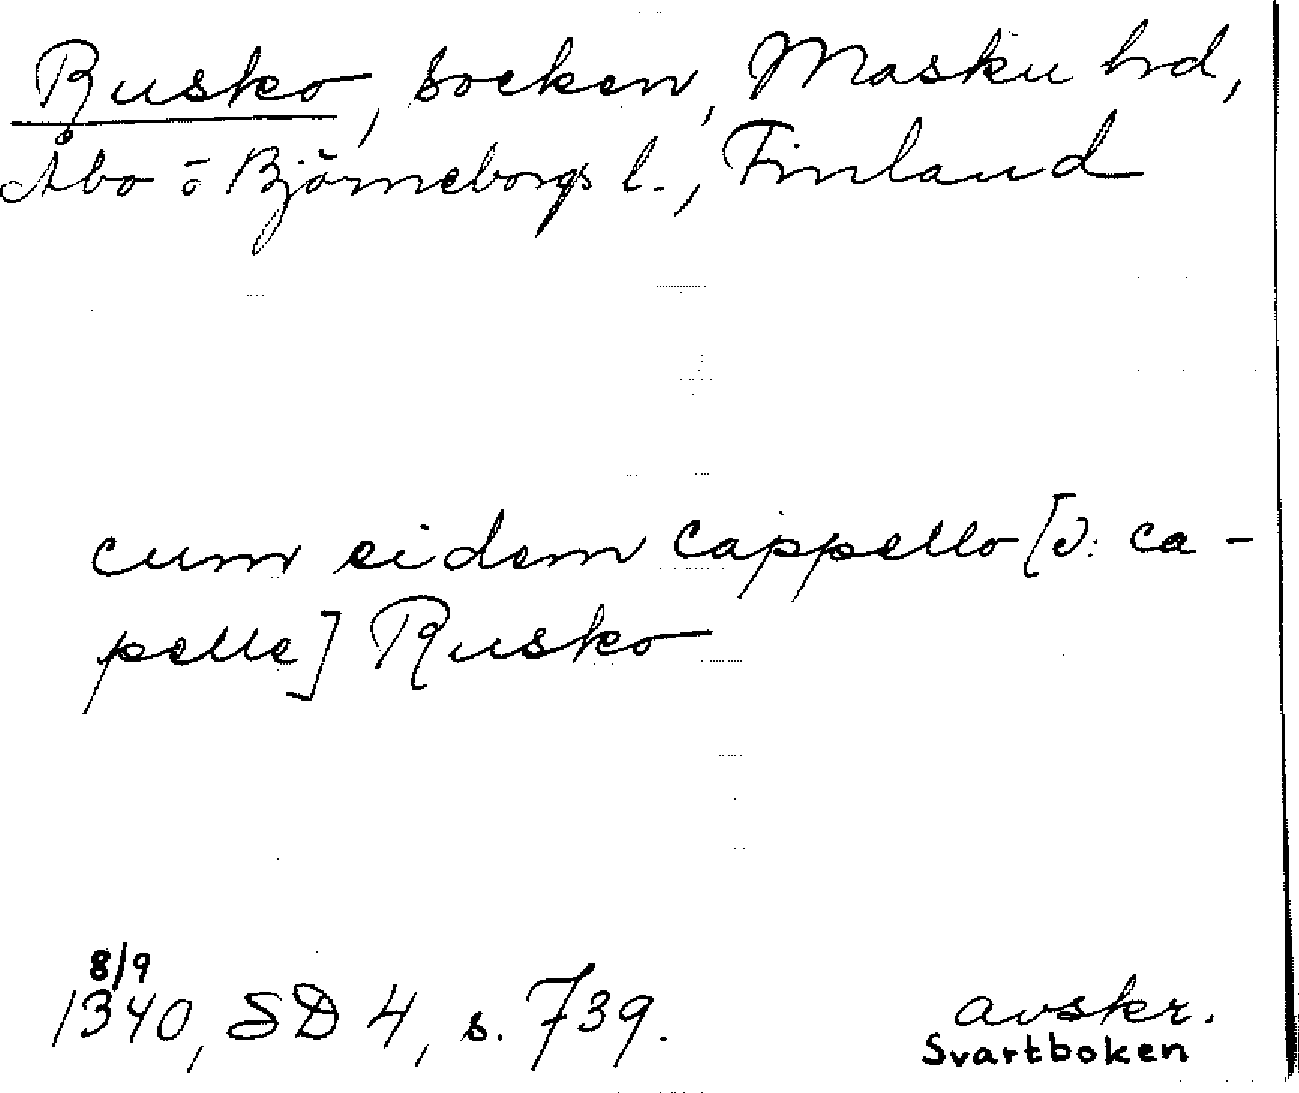 Rusko, socken, Masku hrd,
Åbo o Björneborgs l., Finland
cum eidem cappello [ɔ: ca-
pelle] Rusko
8/9
1340, SD 4, s. 739.
avskr.
Svartboken